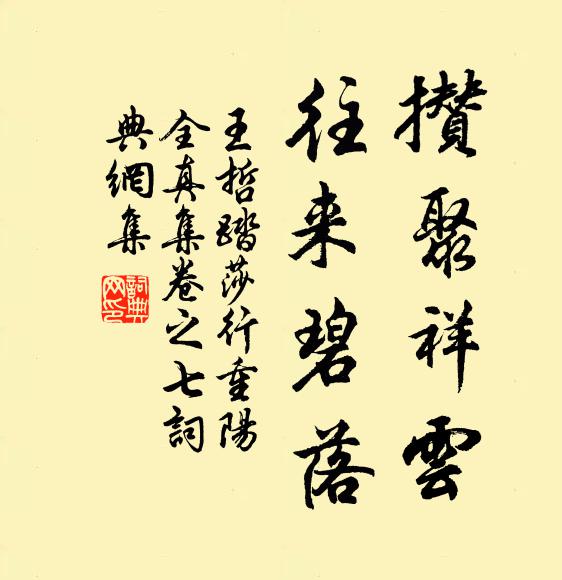 攢聚祥雲
往来碧落
王哲踏莎行重陽
全真集卷之七詞
典網集
詞典
网印